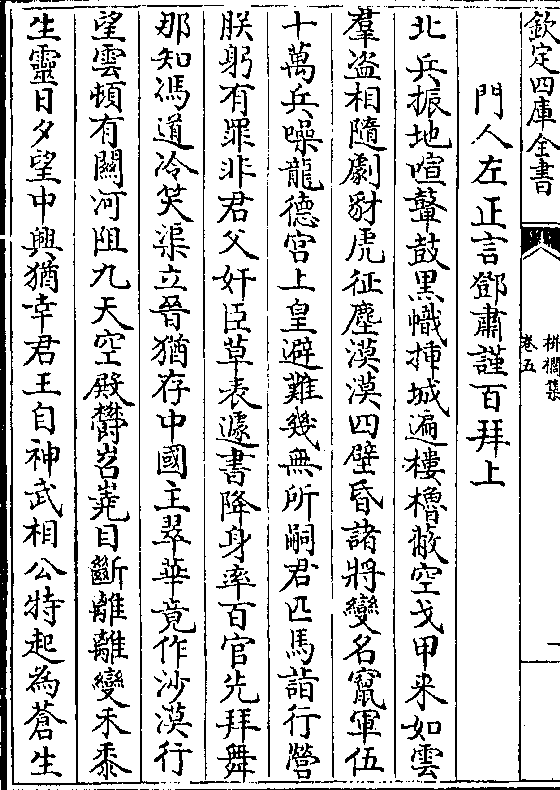 欽定四庫全書
栟櫚集
卷五
一
門人左正言鄧肅謹百拜上
北兵振地喧鼙鼓黑幟揷城遍樓櫓敝空戈甲来如雲
羣盗相隨劇豺虎征塵漠漠四壁昏諸將變名竄軍伍
十萬兵噪龍德宫上皇避難幾無所嗣君匹馬詣行營
朕躬有罪非君父奸臣草表遽書降身率百官先拜舞
那知馮道冷笑渠立晉猶存中國主翠華竟作沙漠行
望雲頓有關河阻九天空殿欝岧嶤目斷離離變禾黍
生靈日夕望中興猶幸君王自神武相公特起為蒼生